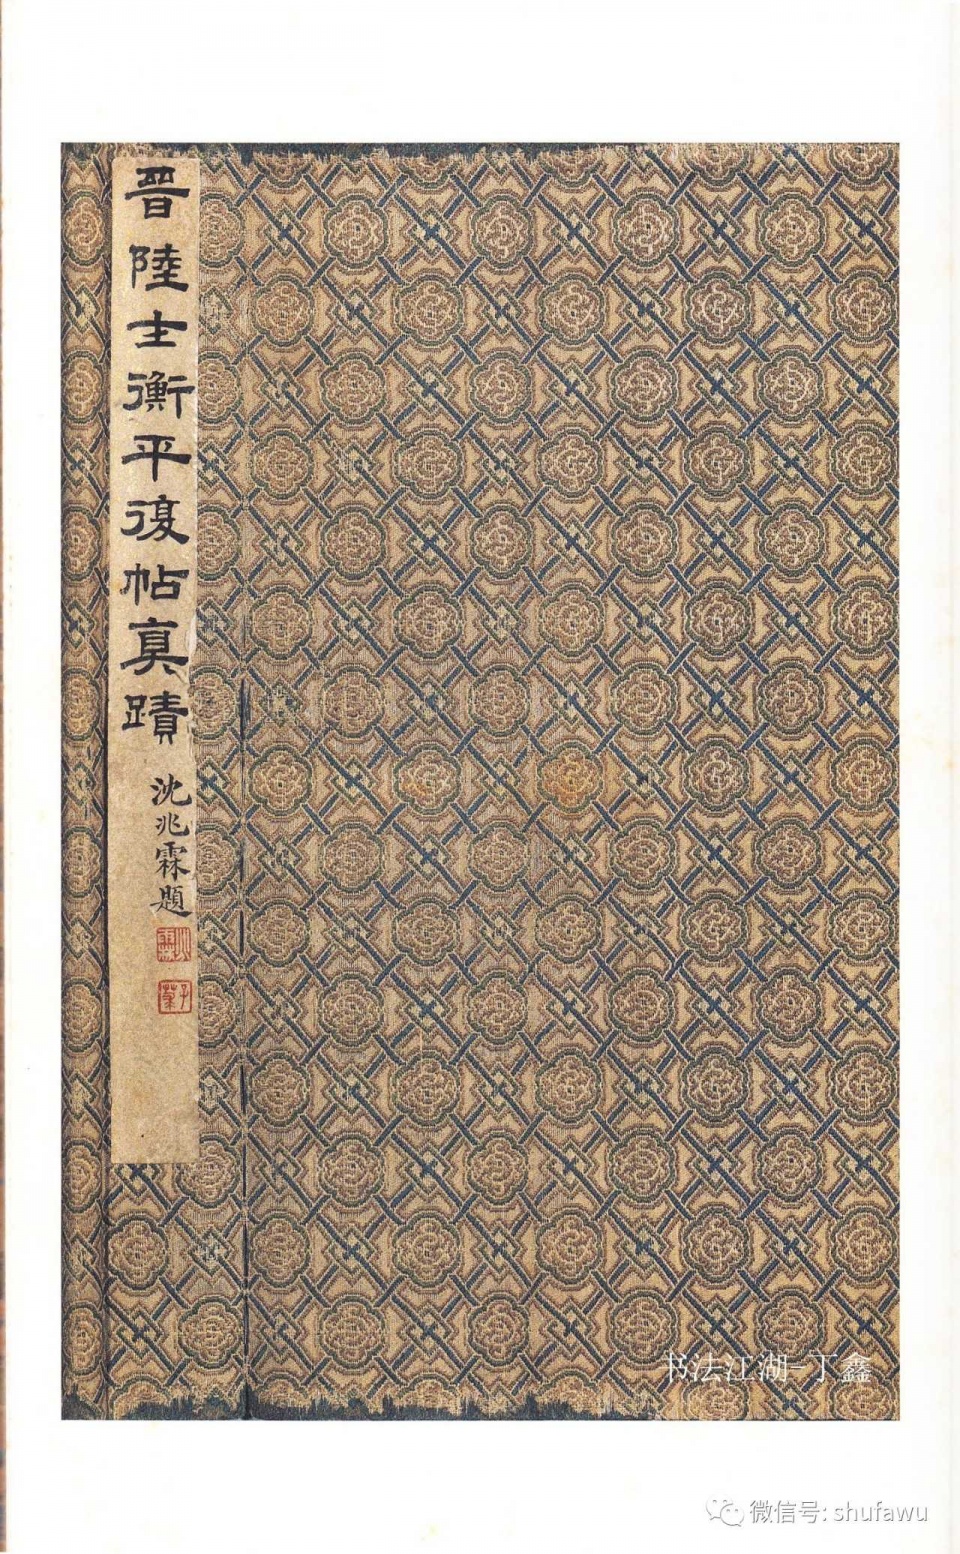 晉陸士衡平復帖真蹟
沈兆霖題
兆霖
子菉
书法江湖-丁鑫
微信号: shufawu